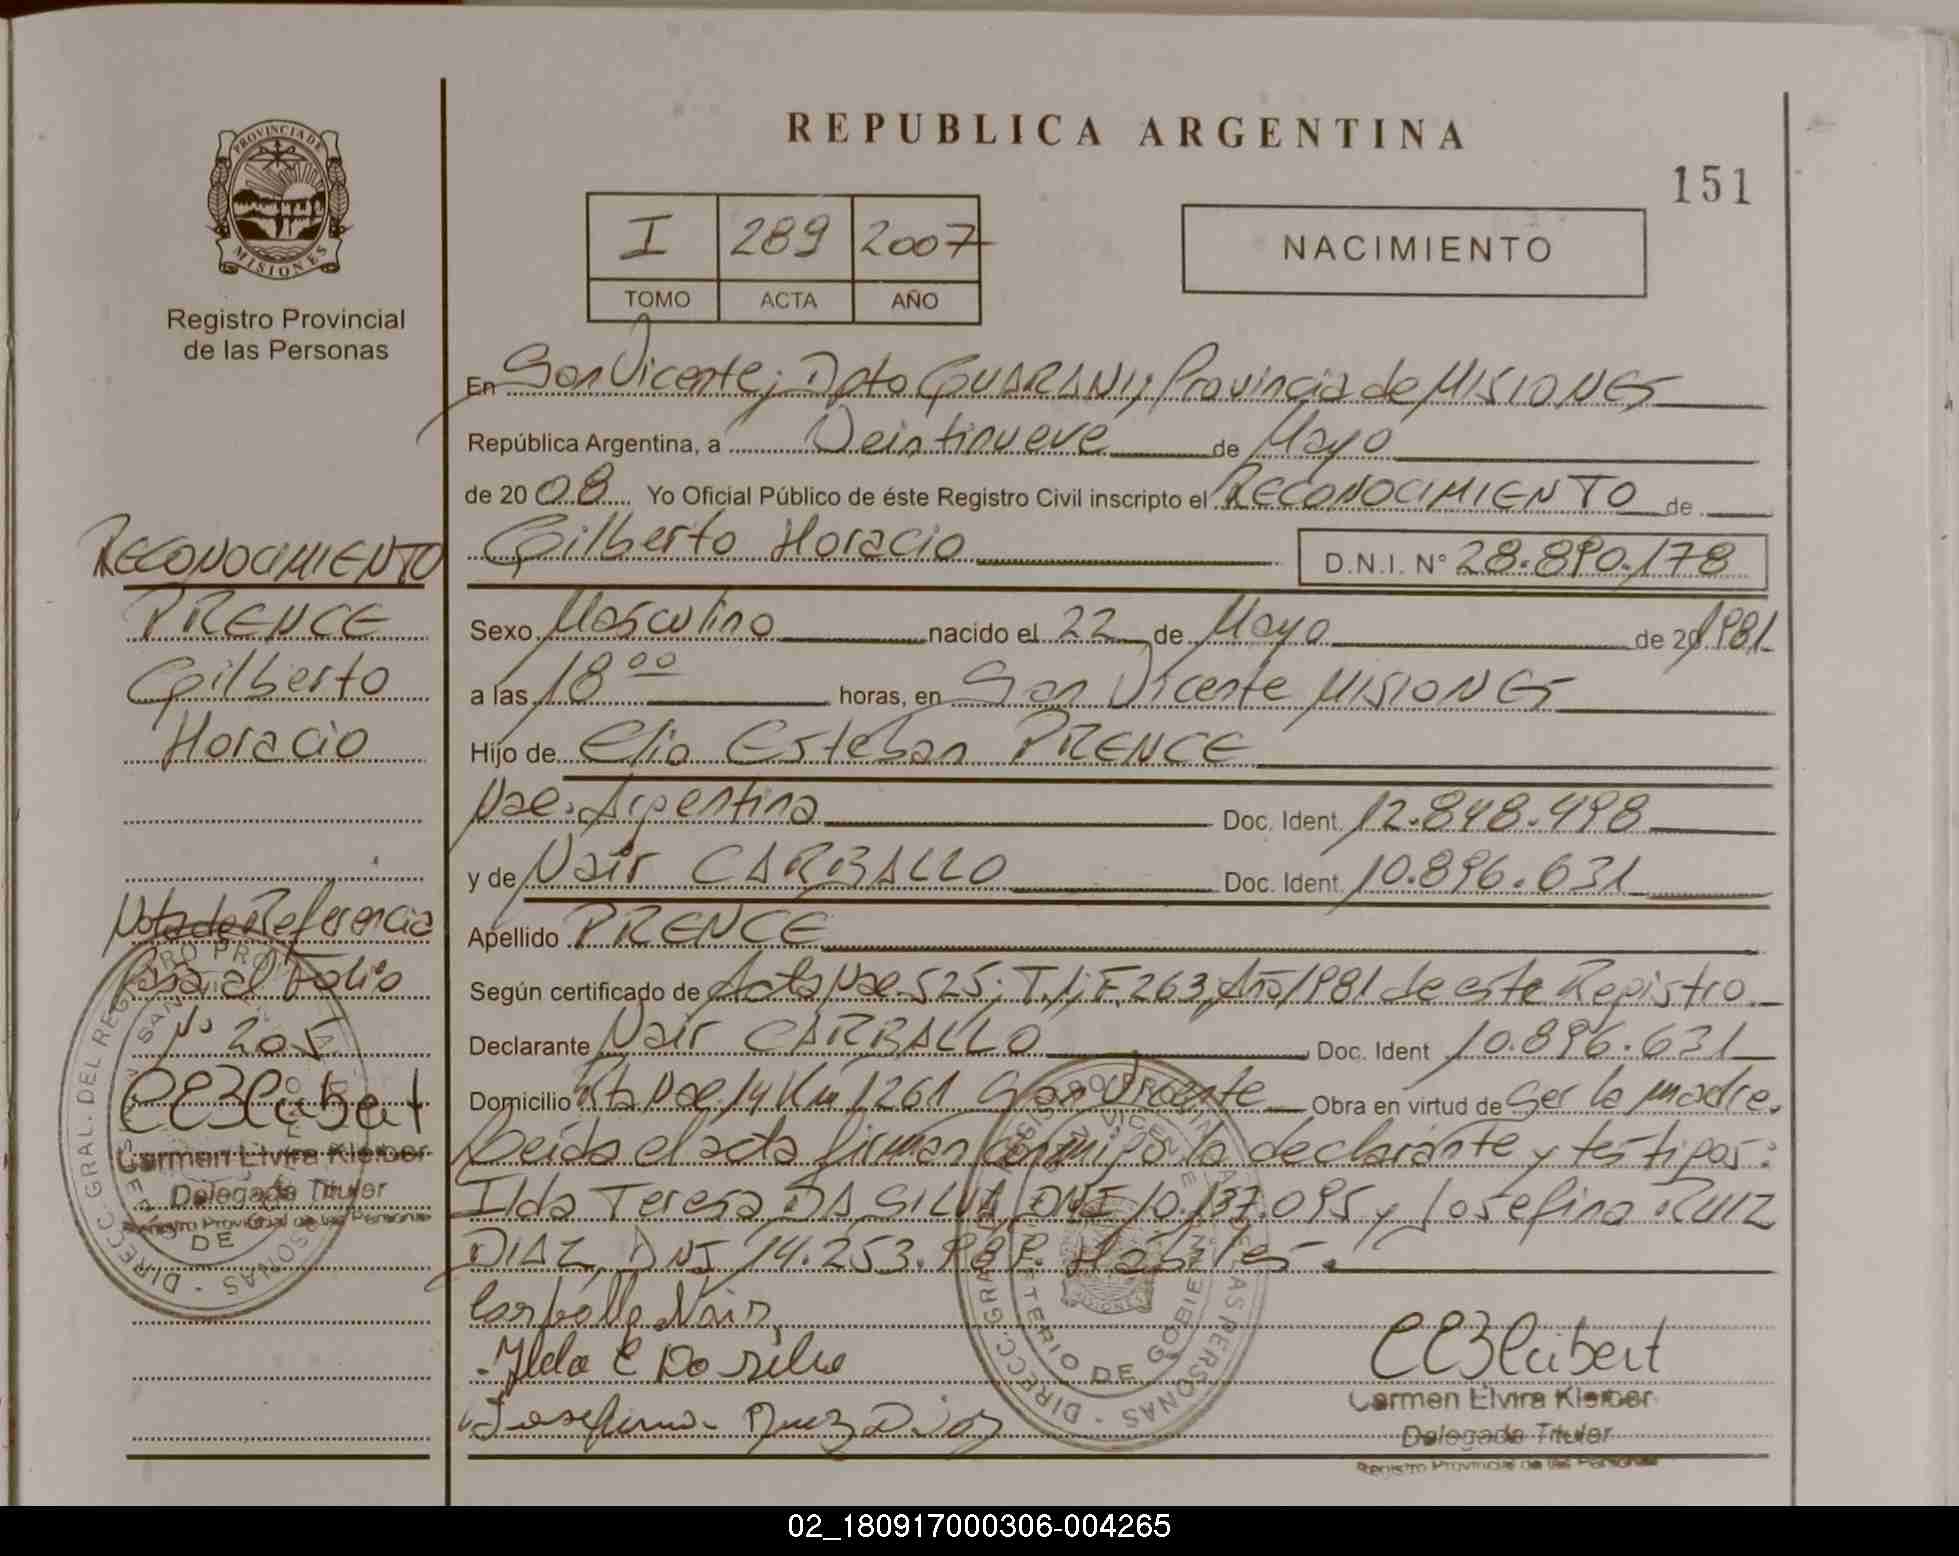 PROVINCIA DE
MISIONES
Registro Provincial
de las Personas
REPUBLICA ARGENTINA
151
I 289 2007
TOMO ACTA AÑO
NACIMIENTO
En San Vicente, Dpto GUARANI, Provincia de MISIONES
República Argentina, a Veintinueve de Mayo
de 20 08 Yo Oficial Público de éste Registro Civil inscripto el RECONOCIMIENTO de
Gilberto Horacio D.N.I. N° 28.890.178
RECONOCIMIENTO
PRENCE
Gilberto
Horacio
Sexo Masculino nacido el 22 de Mayo de 20 1981
a las 18 00 horas, en San Vicente MISIONES
Hijo de Elio Esteban PRENCE
Nac. Argentina Doc. Ident. 12.848.498
y de Nair CARBALLO Doc. Ident. 10.896.631
Apellido PRENCE
Según certificado de Acta Nac. 525; T.I; F. 263, Año 1981 de este Registro
Declarante Nair CARBALLO Doc. Ident 10.896.631
Domicilio Rta Nac. 14 Km 1261 San Vicente Obra en virtud de Ser la madre.
Leída el acta firman conmigo la declarante y testigos:
Ilda Teresa DA SILVA DNI 10.137.095 y Josefina RUIZ
DIAZ, DNI 14.253.989. Hábiles.
Nota de Referencia
Pasa al Folio
N° 205
Carmen Elvira Kleiber
Delegada Titular
Registro Provincial de las Personas
Carballo Nair
Ilda E Da silva
Josefina Ruiz Diaz
Carmen Elvira Kleiber
Delegada Titular
Registro Provincial de las Personas
02_180917000306-004265